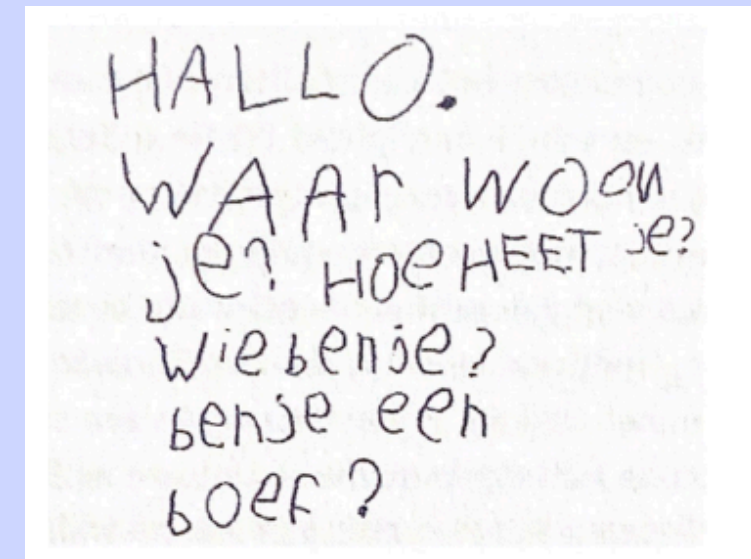 HALLO.
WAAr WOen
je? HOe HEET je?
wiebenje?
bense een
boef?